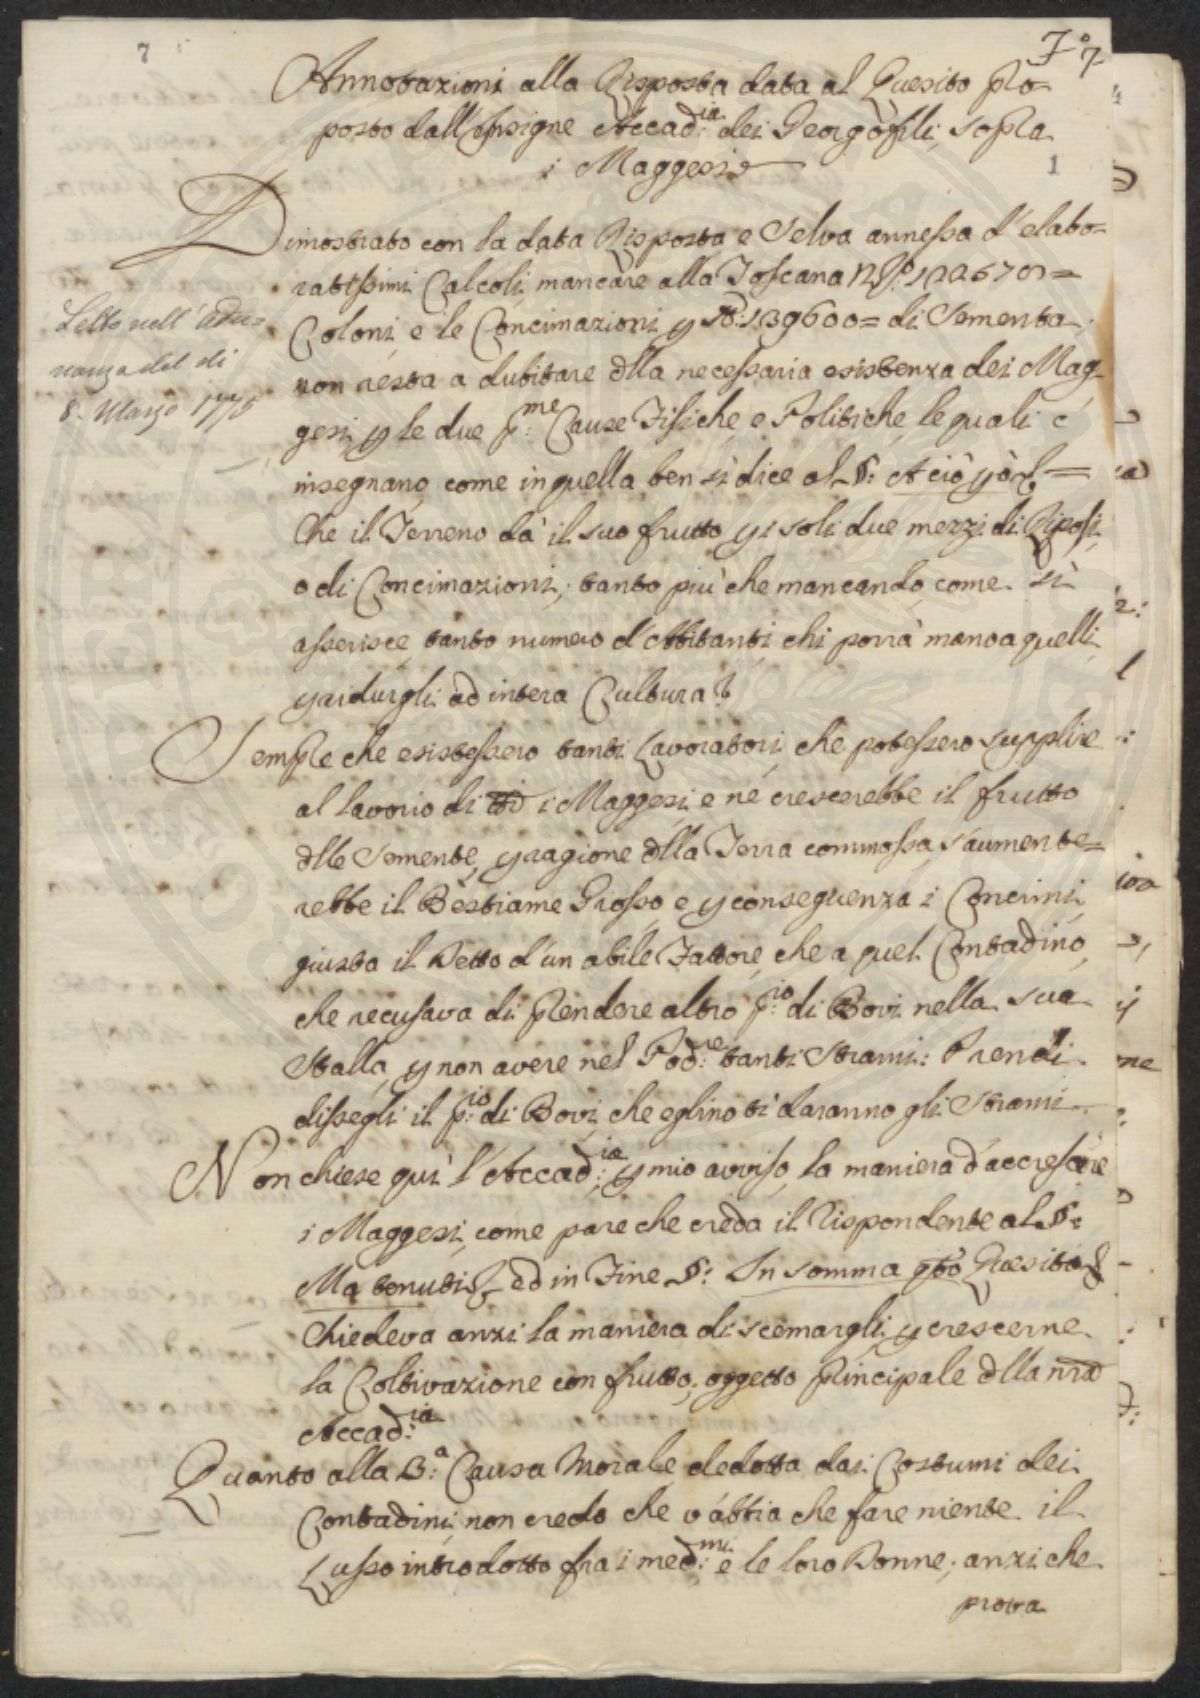 7
7° 7
Annotazioni alla Risposta data al Quesito pro=
posto dall'Insigne Accad:ia dei Georgofili, sopra
i Maggesi
1
Dimostrato con la data Risposta e Selva annessa d'elabo=
ratissimi Calcoli mancare alla Toscana N°: 122670=
Coloni, e le Concimazioni p 139600= di Sementa,
non resta a dubitare dlla necessaria esistenza dei Mag-
gesi, p le due p:me Cause Fisiche, e Politiche, le quali c'
insegnano, come in quella ben si dice al §: A ciò
Che il Terreno dà il suo frutto pi soli due mezzi di Riposi,
o di Concimazioni; tanto più che mancando, come si
asserisce, tanto numero d'Abitanti, chi porrà mano a quelli,
p ridurgli ad intera Cultura?
Letto nell'adu=
nanza del di
8. Marzo 1775
Sempre che esistessero tanti Lavoratori, che potessero supplire
al lavorio di tto i Maggesi, e ne crescerebbe il frutto
dlle Semente, p ragione dlla Terra commossa, s'aumente=
rebbe il Bestiame Grosso e p conseguenza i Concimi,
giusta il Detto d'un abile Fattore, che a quel Contadino,
che recusava di prendere altro p:io di Bovi nella sua
Stalla, p non avere nel Pod:re tanti Strami: Prendi
dissegli il p:io di Bovi, che eglino ti daranno gli Strami
Non chiese quì l'Accad:ia, p mio avviso, la maniera d'accrescere
i Maggesi, come pare che creda il Rispondente al §:
Ma tenuti & ed in Fine §: In somma qto Quesito &
Chiedeva anzi la maniera di scemargli, p crescerne
la Coltivazione con frutto, oggetto principale dlla nra
Accad:ia
Quanto alla 3:a Causa Morale dedotta dai Costumi dei
Contadini, non credo che v'abbia che fare niente il
Lusso introdotto fra i med:mi e le loro Donne; anzi che
prova